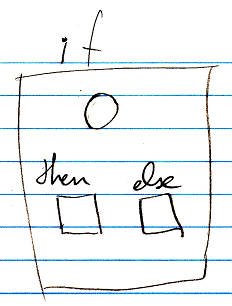 if
then else